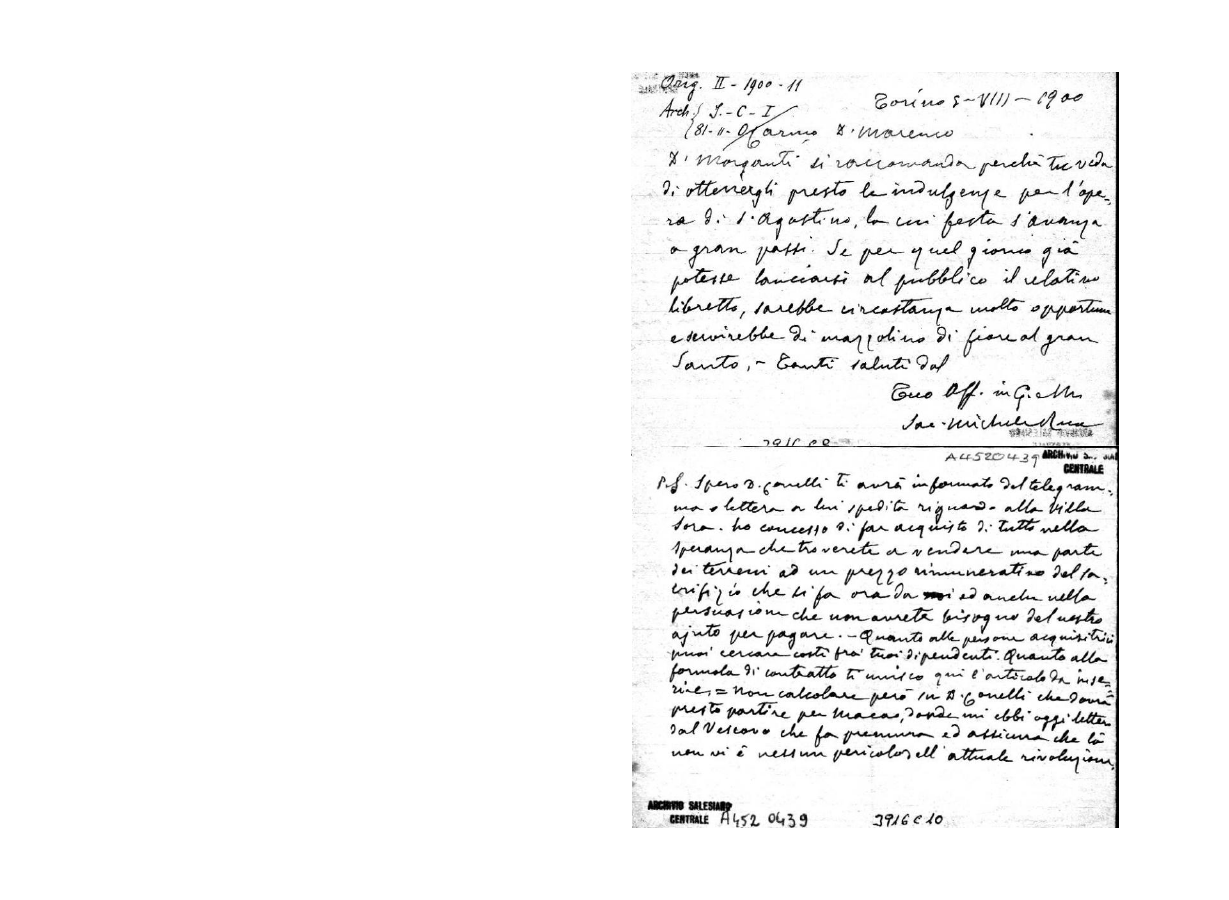 Orig. II - 1900 - 11
Torino 5 - VIII - 1900
Arch. S. - C - I
(81 - II - Carmo D. Marenco
D. Morganti si raccomanda perchè tu veda
di ottenergli presto le indulgenze per l'ope-
ra di S. Agostino, la cui festa s'avanza
a gran passi. Se per quel giorno già
potesse lanciarsi al pubblico il relativo
libretto, sarebbe circostanza molto opportuna
e servirebbe di mazzolino di fiore al gran
Santo, - Tanti saluti dal
Tuo Aff. in G. e M.
Sac. Michele Rua
3916 C 9
A4520439 ARCHIVIO
CENTRALE
P.S. Spero D. Conelli ti avrà informato del telegram-
ma e lettera a lui spedita riguardo alla Villa
Sora. Ho concesso di far acquisto di tutto nella
speranza che troverete a vendere una parte
dei terreni ad un prezzo rimunerativo del sa-
crifizio che si fa ora da noi ed anche nella
persuasione che non avrete bisogno del nostro
ajuto per pagare. - Quanto alle persone acquisitrici
puoi cercare costì fra i tuoi dipendenti. Quanto alla
formola di contratto ti unisco qui l'articolo da inse-
rire, = Non calcolare però su D. Conelli che dovrà
presto partire per Macao, donde mi ebbi oggi lettera
dal Vescovo che fa premura ed assicura che là
non vi è nessun pericolo dell'attuale rivoluzione.
ARCHIVIO SALESIANO
CENTRALE A452 0439
3916 C 10